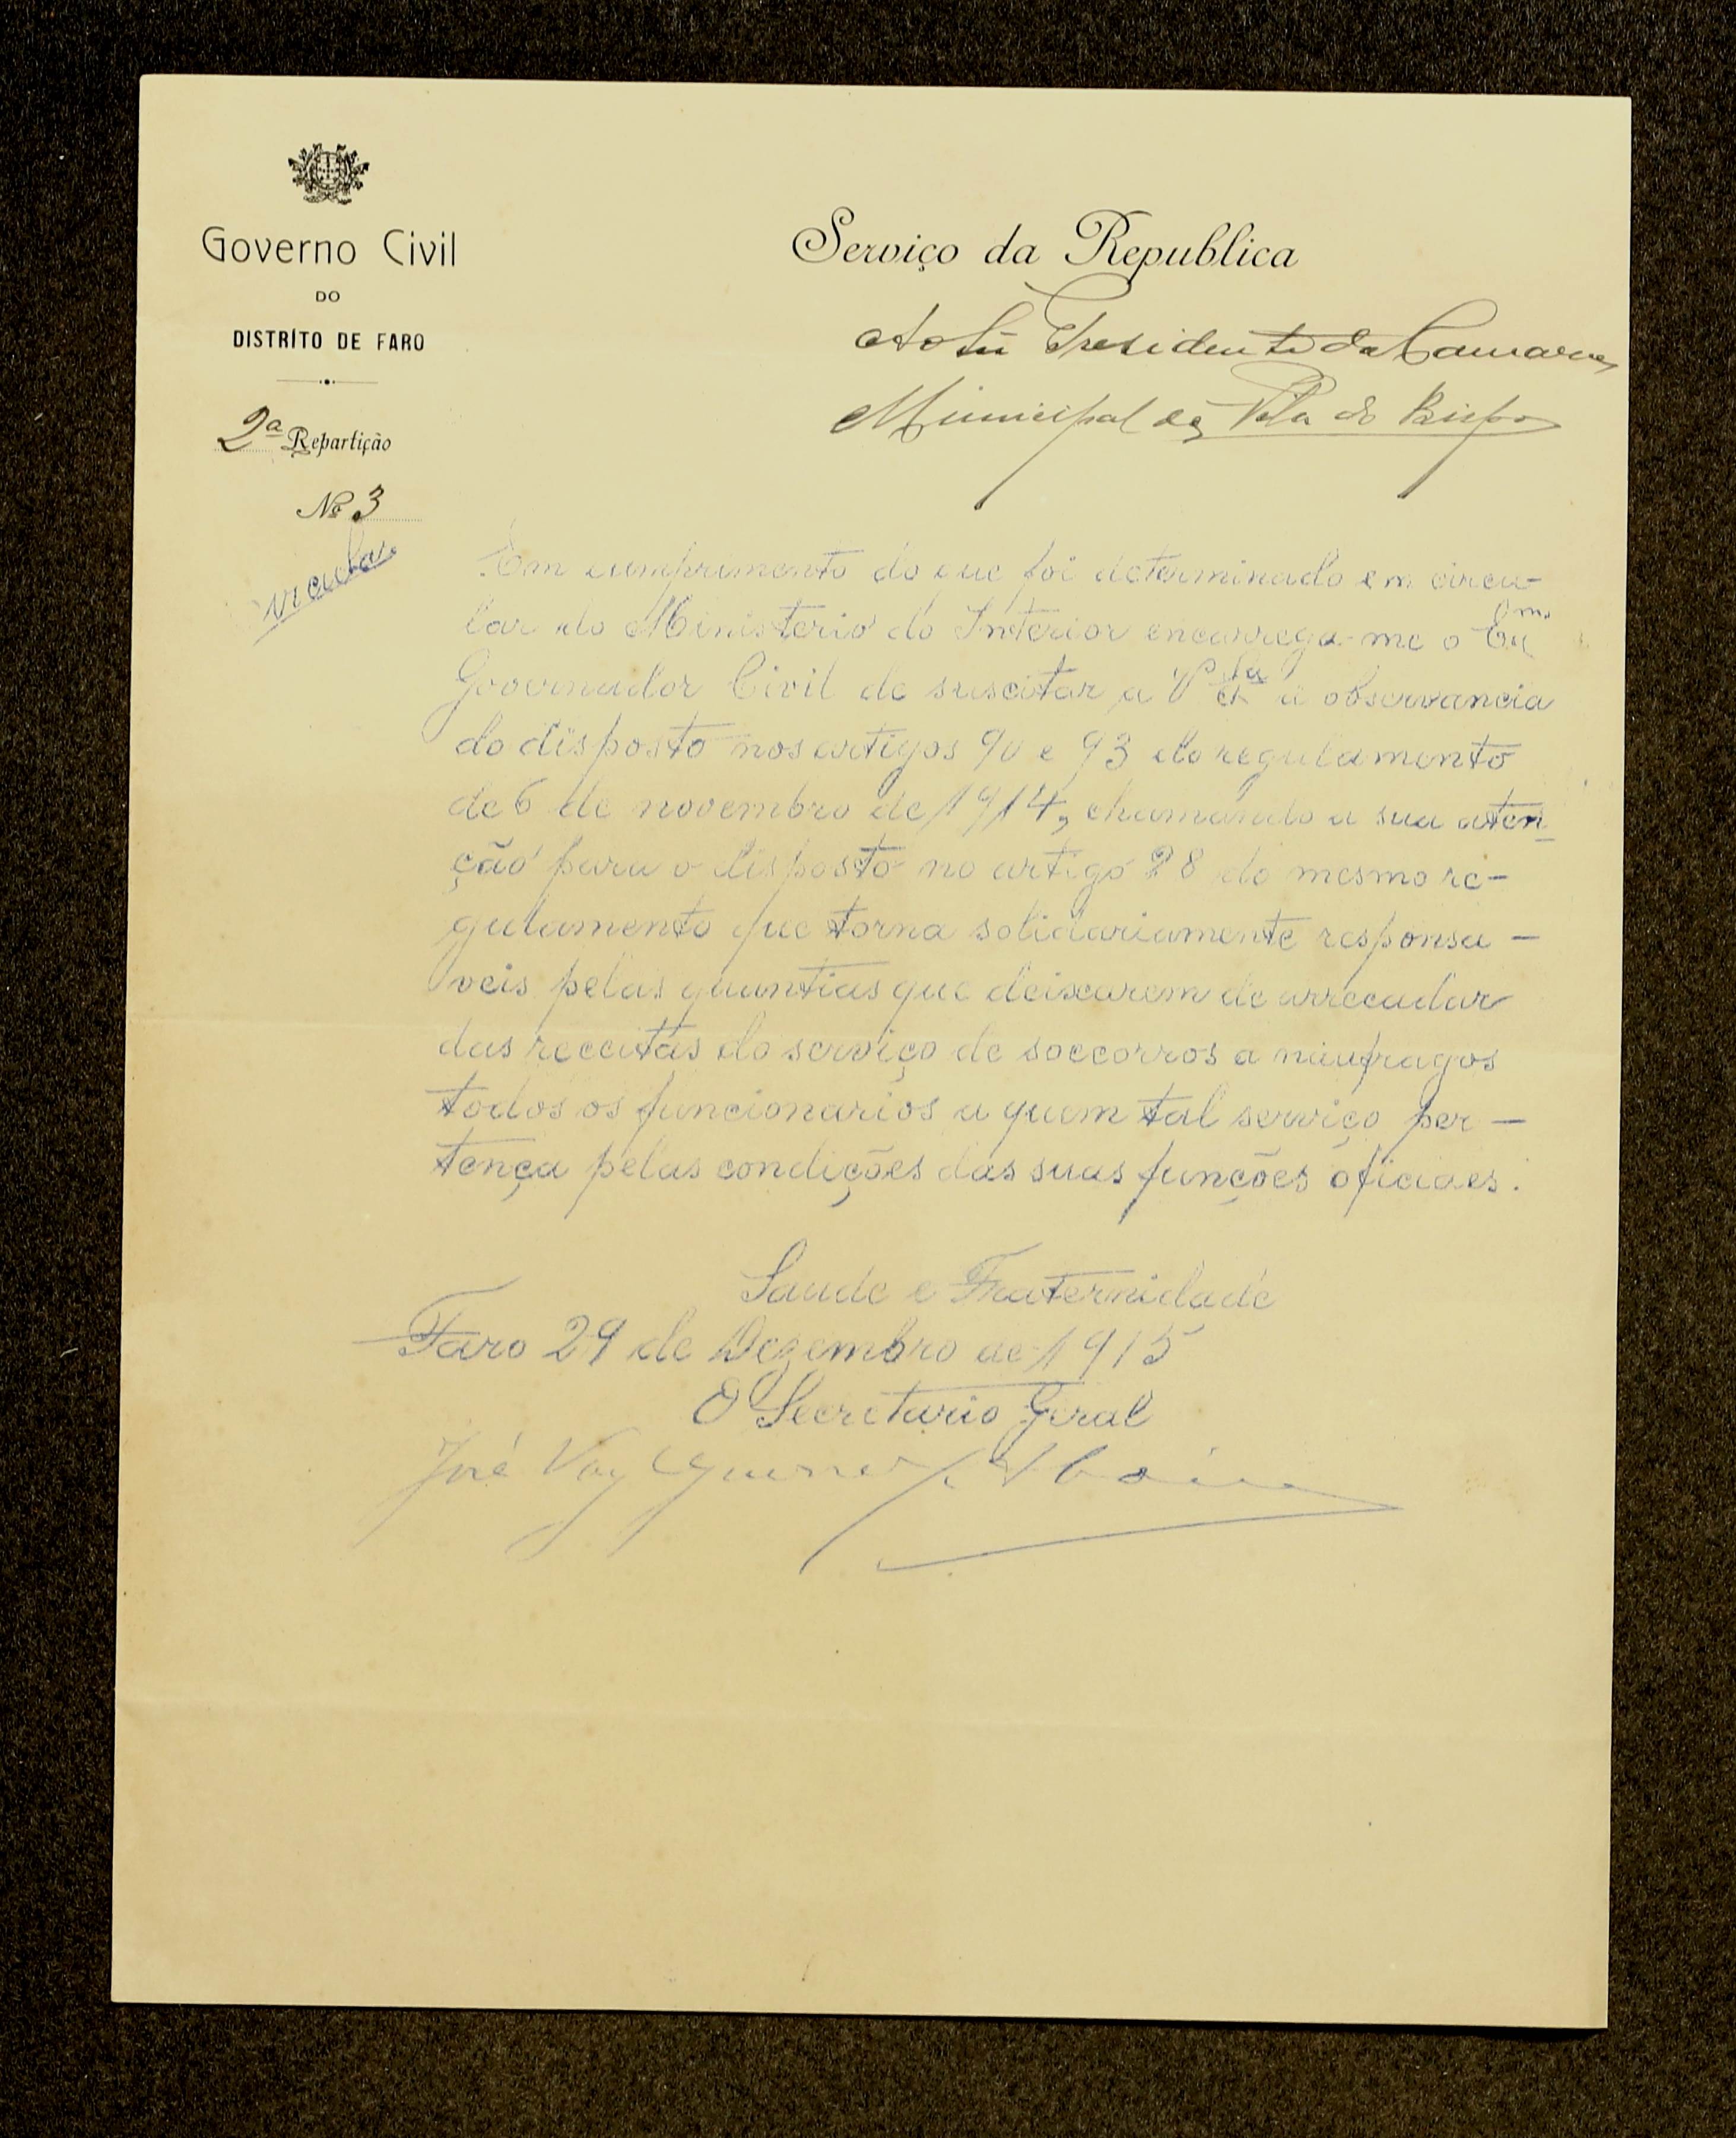 Governo Civil
DO
DISTRITO DE FARO
2ª Repartição
Nº 3
Circular
Serviço da Republica
Ao Snr Presidente da Camara
Municipal de Vila do Bispo
Em cumprimento do que foi determinado em circu-
lar do Ministerio do Interior encarrega-me o Exmo
Governador Civil de suscitar a V Exª a observancia
do disposto nos artigos 90 e 93 do regulamento
de 6 de novembro de 1914, chamando a sua aten-
ção para o disposto no artigo 98 do mesmo re-
gulamento que torna solidariamente responsa-
veis pelas quantias que deixarem de arrecadar
das receitas do serviço de soccorros a naufragos
todos os funcionarios a quem tal serviço per-
tença pelas condições das suas funções oficiaes.
Saude e Fraternidade
Faro 29 de Dezembro de 1915
O Secretario Geral
José Vaz